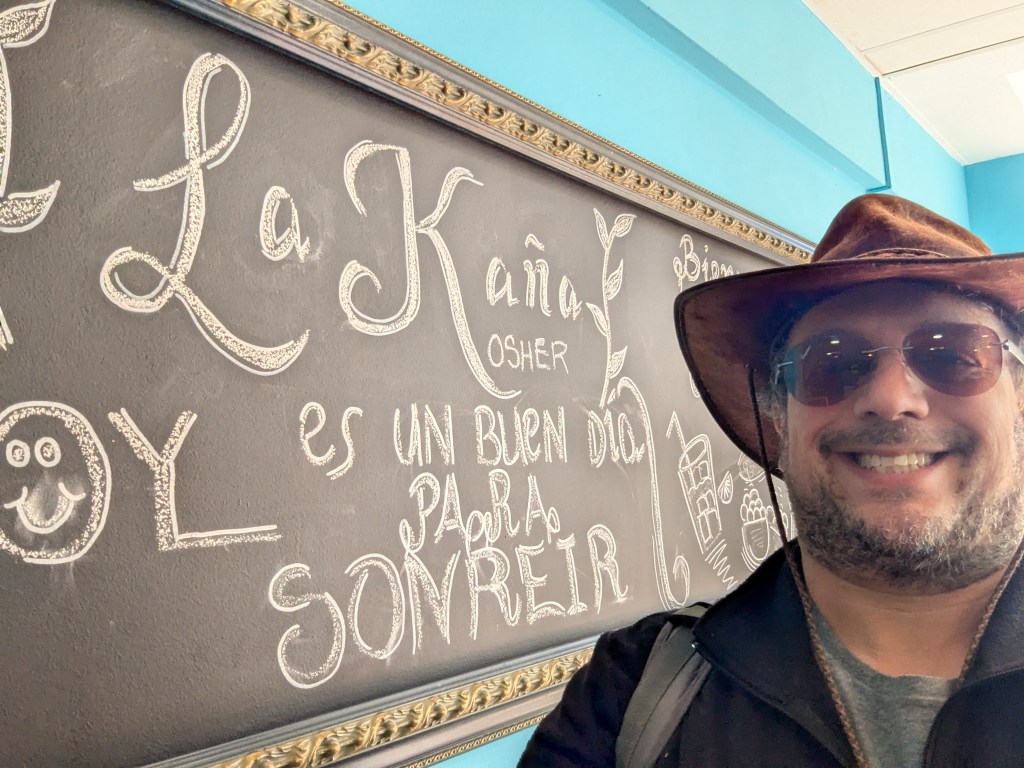 La Kaña
OSHER
OY es UN BUEN DÍA
PARA
SONREIR